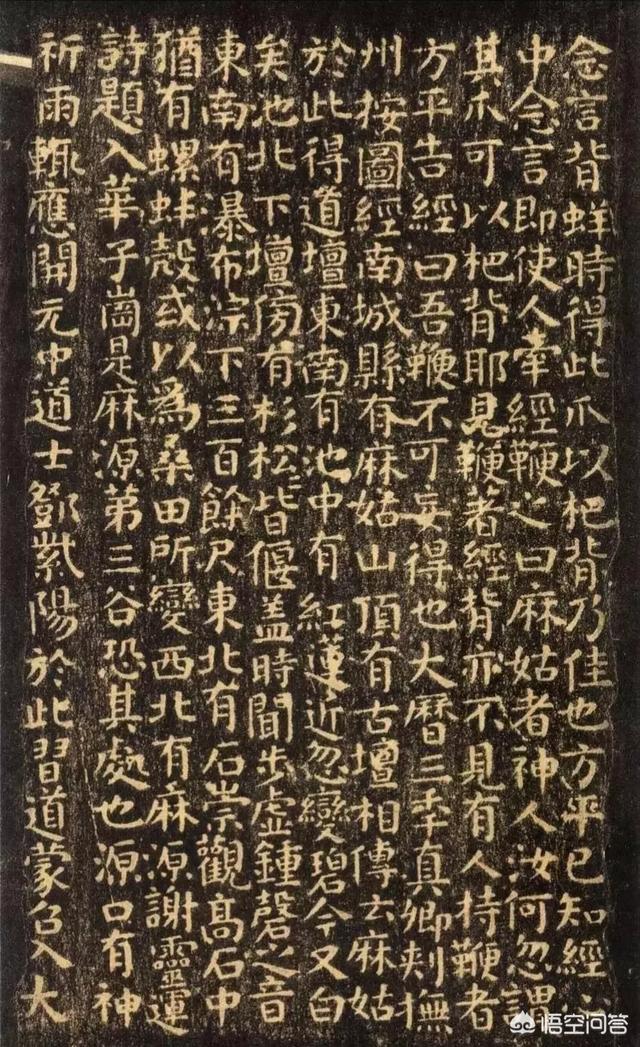 念言背蛘時得此爪以杷背乃佳也方平已知經心
中念言即使人牽經鞭之曰麻姑者神人汝何忽謂
其爪可以杷背耶見鞭著經背亦不見有人持鞭者
方平告經曰吾鞭不可妄得也大曆三年真卿刺撫
州按圖經南城縣有麻姑山頂有古壇相傳云麻姑
於此得道壇東南有池中有紅蓮近忽變碧今又白
矣池北下壇傍有杉松皆偃盖時聞步虛鍾磬之音
東南有瀑布淙下三百餘尺東北有石崇觀高石中
猶有螺蚌殼或以為桑田所變西北有麻源謝靈運
詩題入華子崗是麻源第三谷恐其處也源口有神
祈雨輒應開元中道士鄧紫陽於此習道蒙召入大
悟空问答